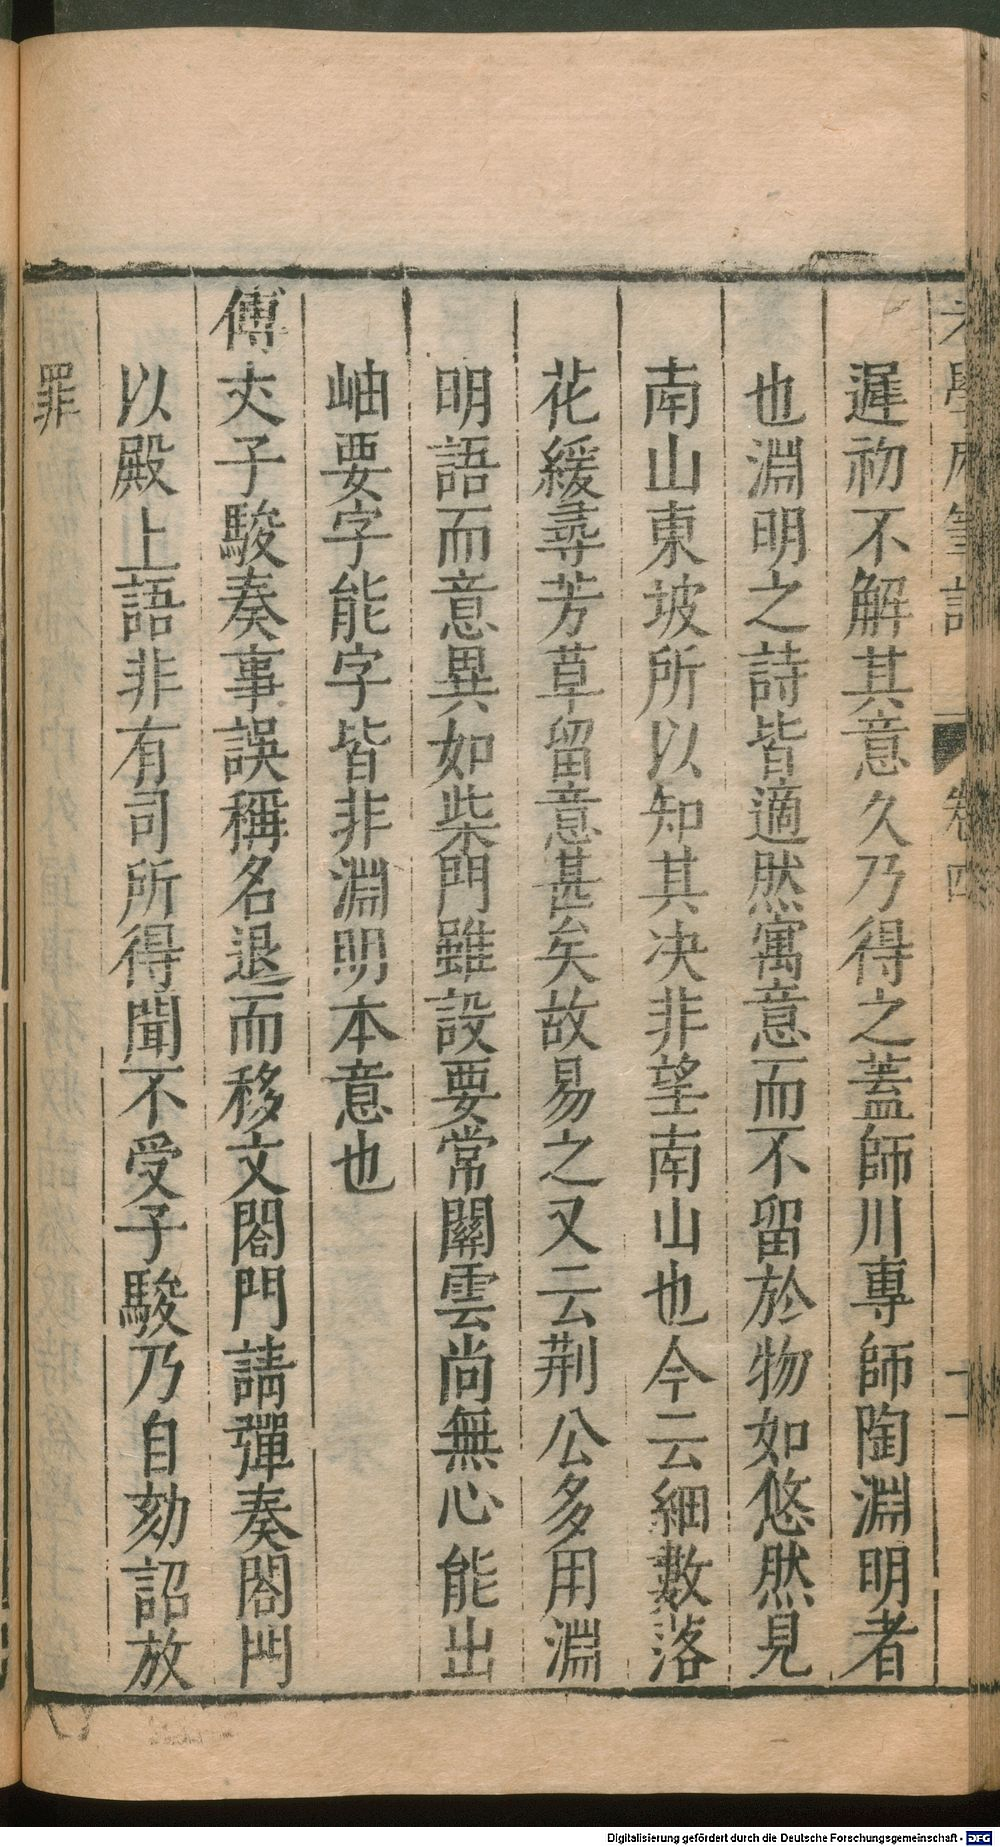 遲初不解其意久乃得之蓋師川專師陶淵明者
也淵明之詩皆適然寓意而不留於物如悠然見
南山東坡所以知其决非望南山也今云細數落
花緩尋芳草留意甚矣故易之又云荆公多用淵
明語而意異如柴門雖設要常關雲尚無心能出
岫要字能字皆非淵明本意也
傅夫子駿奏事誤稱名退而移文閤門請彈奏閤門
以殿上語非有司所得聞不受子駿乃自劾詔放
罪
學 筆記 卷四 十一
Digitalisierung gefördert durch die Deutsche Forschungsgemeinschaft - DFG